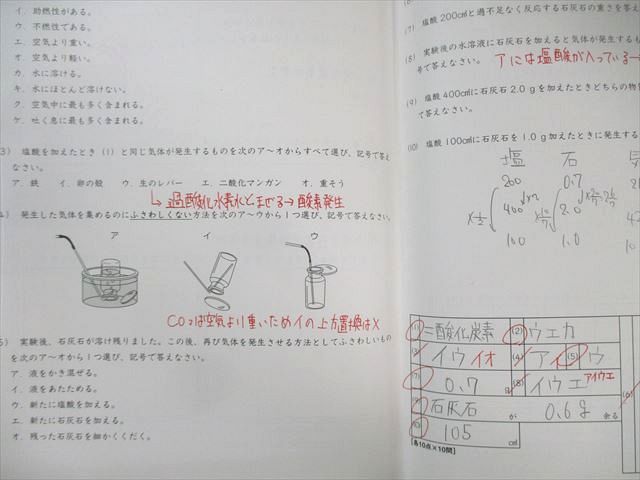 イ．助燃性がある。
ウ．不燃性である。
エ．空気より重い。
オ．空気より軽い。
カ．水に溶ける。
キ．水にほとんど溶けない。
ク．空気中に最も多く含まれる。
ケ．吐く息に最も多く含まれる。
3） 塩酸を加えたとき（1）と同じ気体が発生するものを次のア～オからすべて選び、記号で答え
なさい。
ア．鉄 イ．卵の殻 ウ．生のレバー エ．二酸化マンガン オ．重そう
↳過酸化水素水とまぜる→酸素発生
4） 発生した気体を集めるのにふさわしくない方法を次のア～ウから1つ選び、記号で答えなさい。
ア イ ウ
CO2は空気より重いためイの上方置換は×
5） 実験後、石灰石が溶け残りました。この後、再び気体を発生させる方法としてふさわしいもの
を次のア～オから1つ選び、記号で答えなさい。
ア．液をかき混ぜる。
イ．液をあたためる。
ウ．新たに塩酸を加える。
エ．新たに石灰石を加える。
オ．残った石灰石を細かくくだく。
(7) 塩酸200cm³と過不足なく反応する石灰石の重さを答え
(8) 実験後の水溶液に石灰石を加えると気体が発生するも
号で答えなさい。 アには塩酸が入っている
(9) 塩酸400cm³に石灰石2.0gを加えたときどちらの物質
で答えなさい。
(10) 塩酸100cm³に石灰石を1.0g加えたときに発生する
塩 石
200 0.7
400 2.0
100 1.0
(1) 二酸化炭素 (2) ウエカ
(3) イウ イオ (4) ア イ (5) ウ
(7) 0.7 g (8) イウエ アイウエ
(9) 石灰石 が 0.6g 余る
(10) 105 cm³
[各10点×10問]